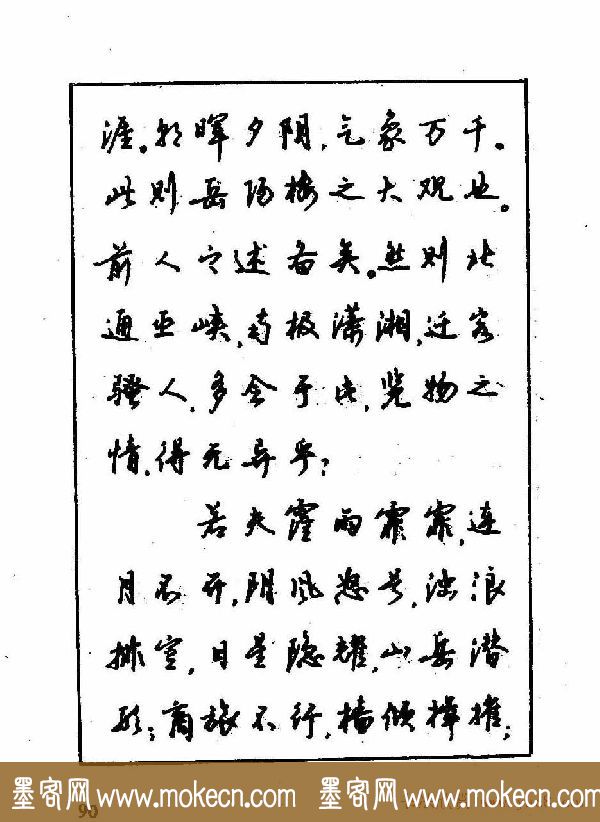 涯。朝晖夕阴，气象万千。
此则岳阳楼之大观也。
前人之述备矣。然则北
通巫峡，南极潇湘，迁客
骚人，多会于此，览物之
情，得无异乎？
若夫霪雨霏霏，连
月不开，阴风怒号，浊浪
排空，日星隐耀，山岳潜
形；商旅不行，樯倾楫摧；
墨客网 www.mokecn.com 墨客网 www.mokecn.com
90